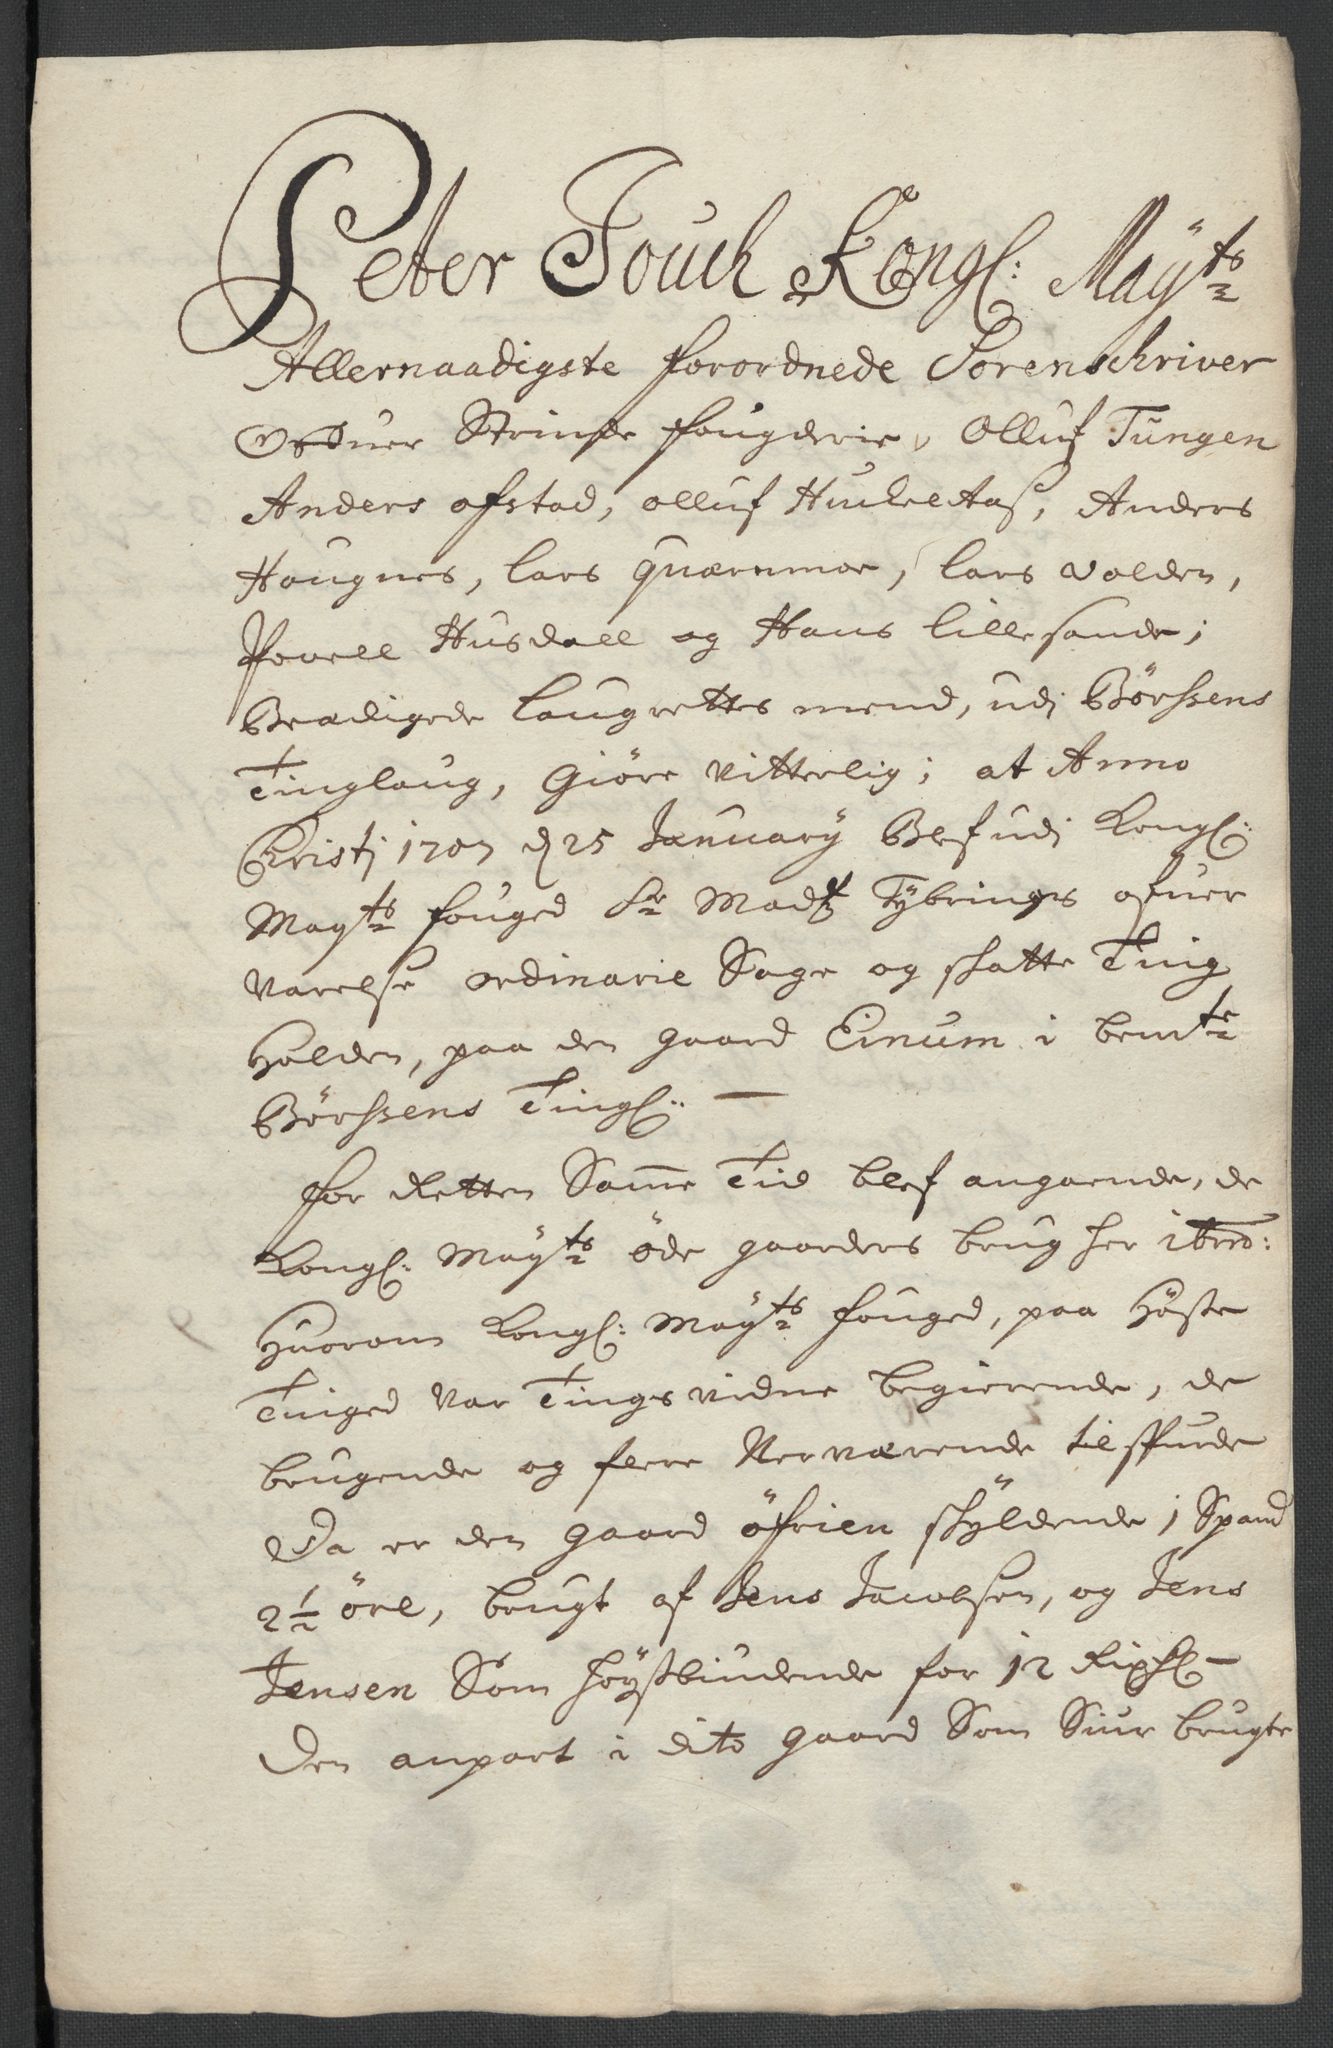 Peter Jouch Kongl: Maÿts
Allernaadigste forordnede Sorenschriver
Ofuer Strinde fougderie, Olluf Tungen
Anders ofstad, olluf Huckelaas, Anders
Hougnes, Lars quernmoe, Lars Volden,
Povell Husdall og Hans Lillesande;
Beædigede Laugrettes mend, udj Börssens
Tinglaug, Giöre Vitterlig; at Anno
Christj 1707 d 25 Januarÿ Blef udj Kongl:
Mayts fouged Sr Madtz Tÿbrings ofuer
Varelse ordinarie Sage og skatte Ting
Holden, paa den gaard Einum i bemte
Börssens Tingl: —
for Retten Samme Tid blef angaaende, de
Kongl: Maÿts öde gaarders brug her i
Huorom Kongl: Maÿts fouged, paa Höste
Tinged Var Tings vidne begierende, de
brugende og flere Nerværende tilspurde
Da er den gaard öfrien skÿldende 1 Spand
2½ öre, brugt af Jens Jacobsen, og Jens
Jensen Som höÿstbiudende for 12 Rixdl —
Den anpart i dito gaard Som Siur brugte